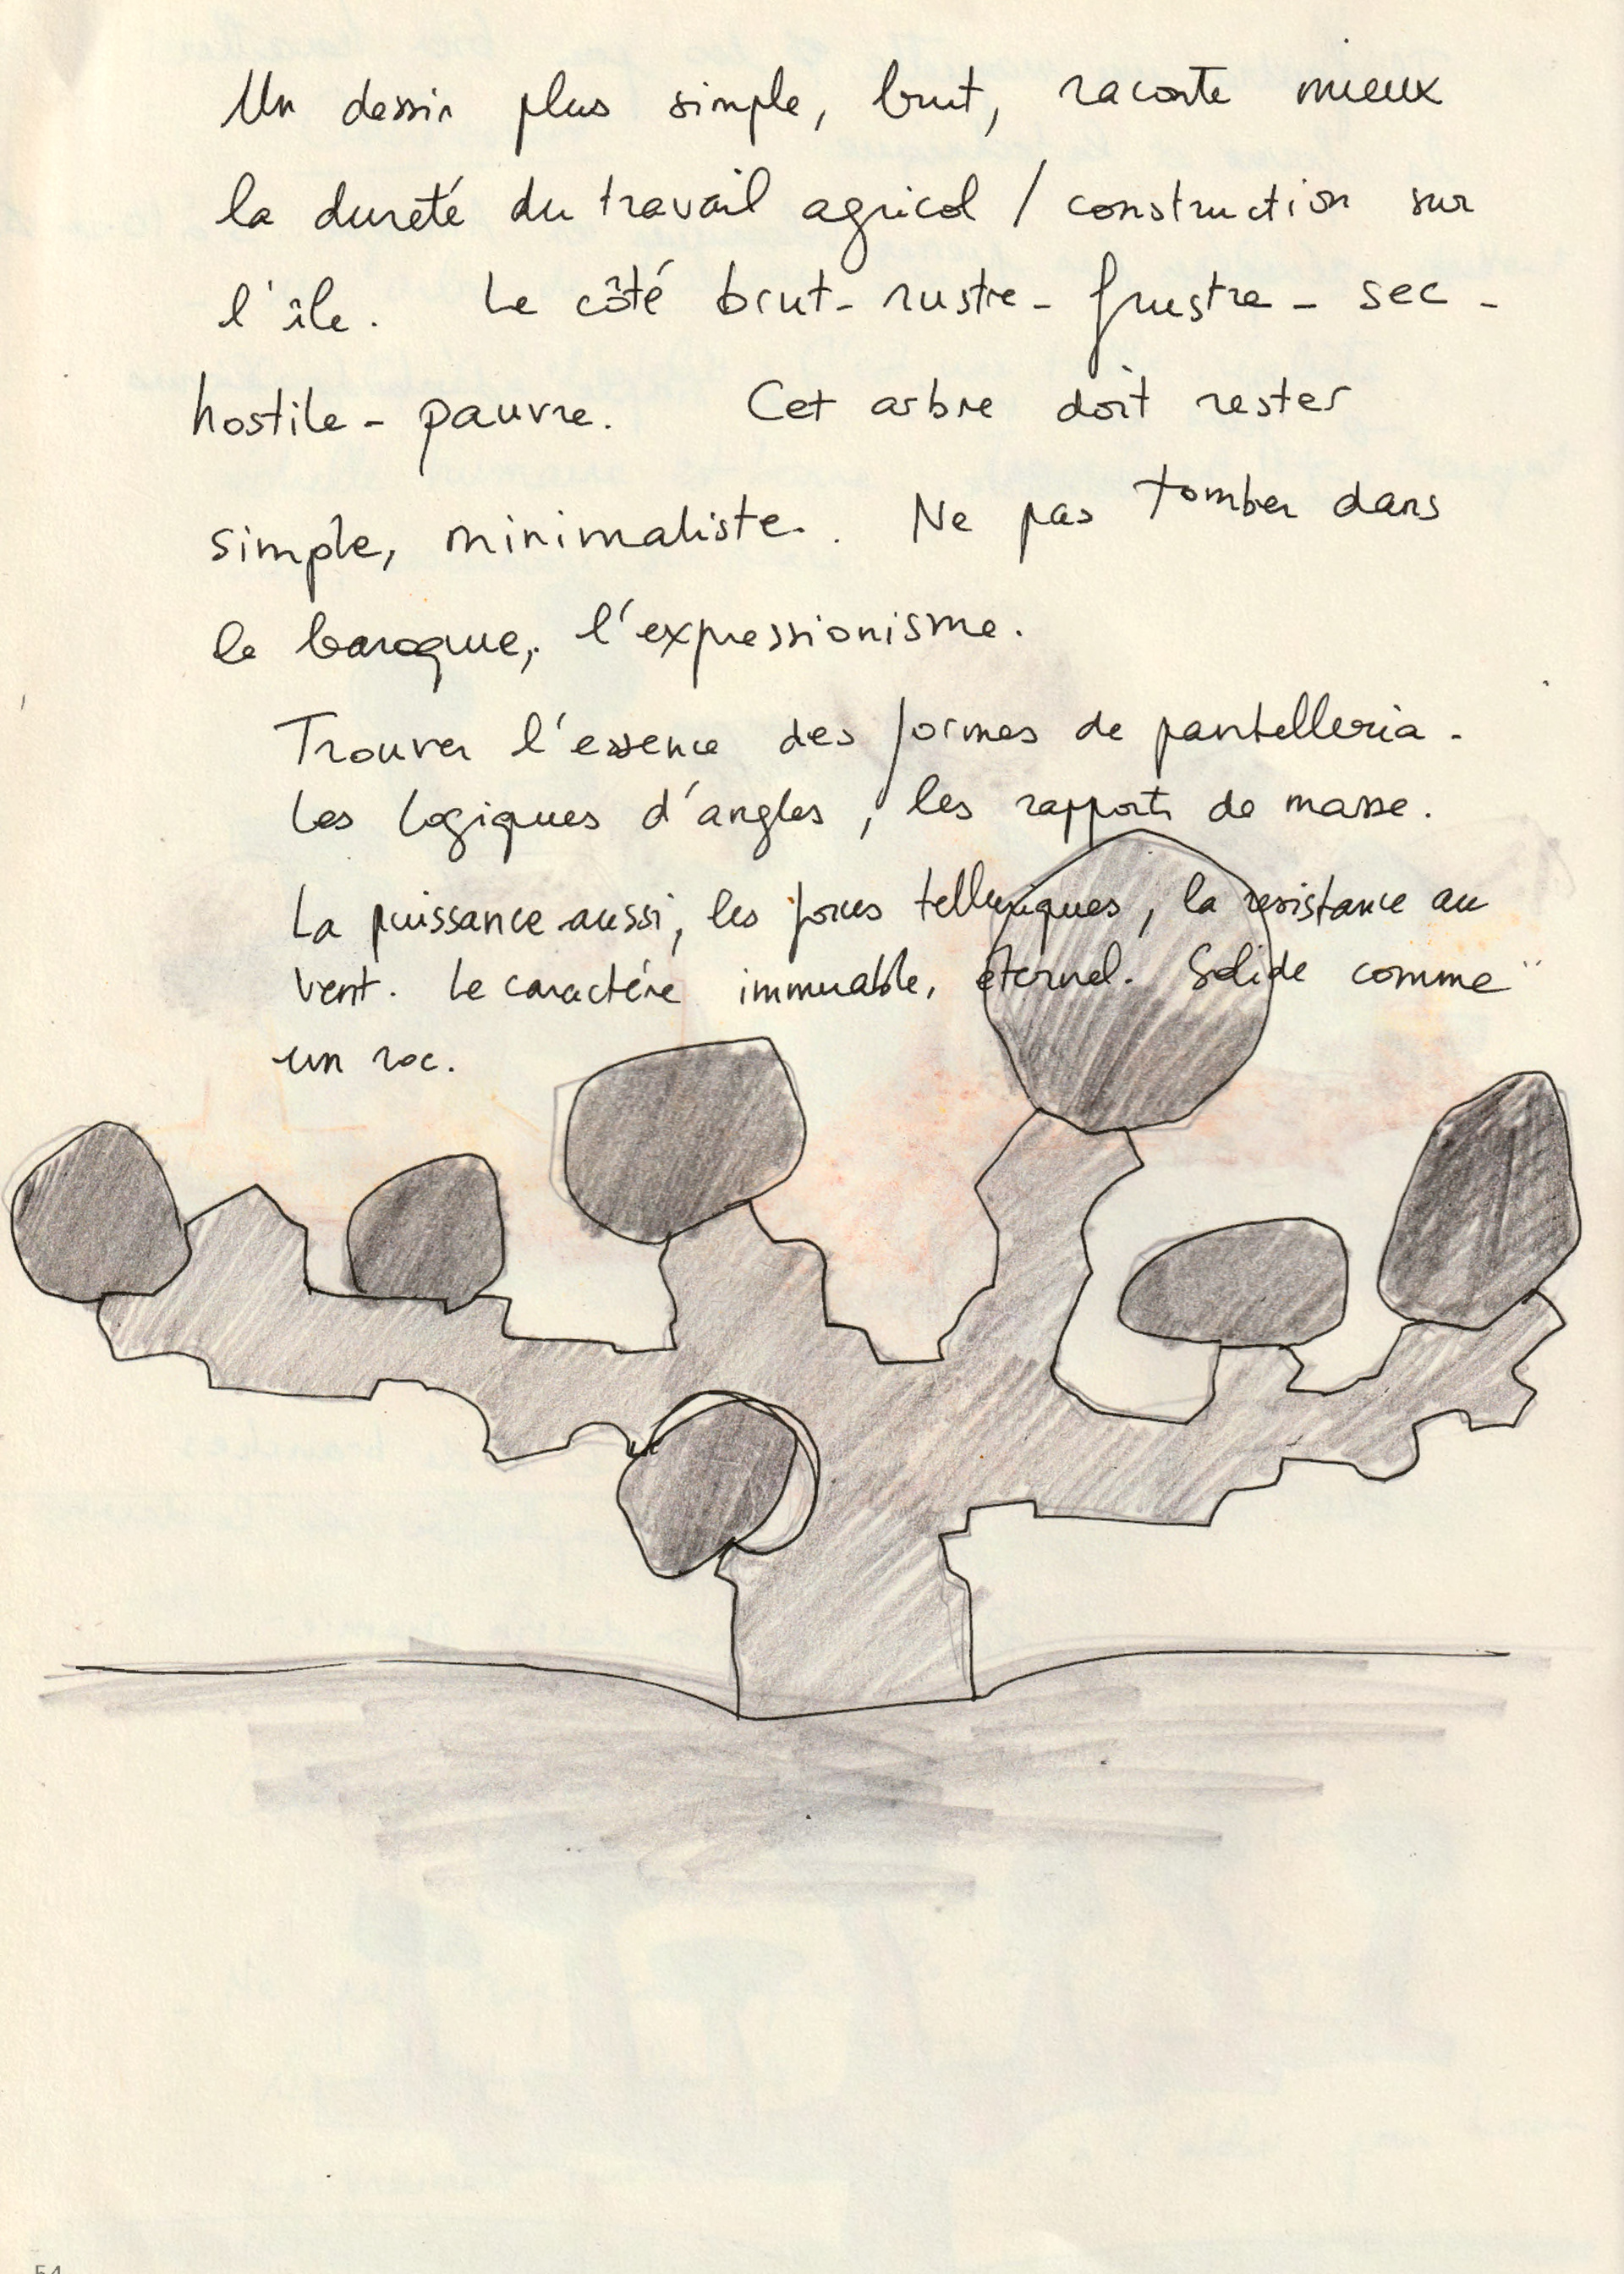 Un dessin plus simple, brut, raconte mieux
la dureté du travail agricol / construction sur
l'île. Le côté brut - rustre - frustre - sec -
hostile - pauvre. Cet arbre doit rester
simple, minimaliste. Ne pas tomber dans
le baroque, l'expressionisme.
Trouver l'essence des formes de pantelleria.
Les logiques d'angles, les rapports de masse.
La puissance aussi, les forces telluriques, la resistance au
vent. Le caractére immuable, éternel. Solide comme
un roc.
54